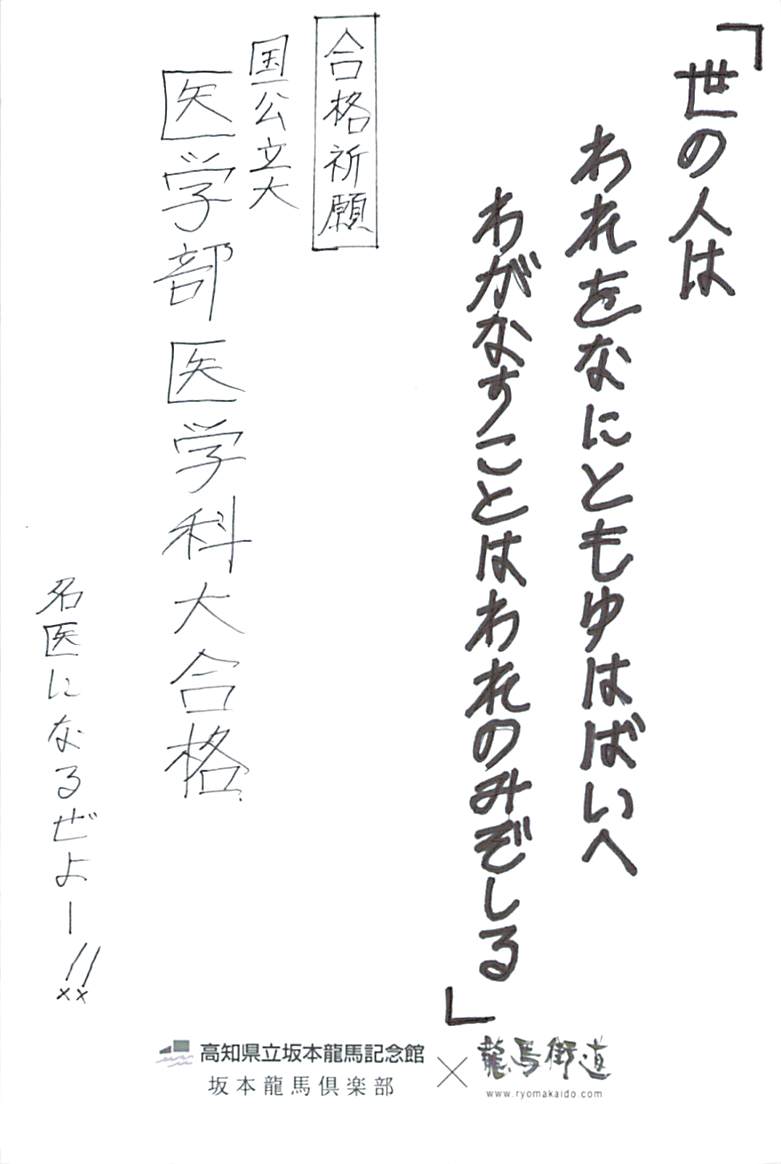 「世の人は
われをなにともゆはばいへ
わがなすことはわれのみぞしる」
合格祈願
国公立大
医学部医学科大合格
名医になるぜよー!!
高知県立坂本龍馬記念館
坂本龍馬倶楽部
×
龍馬街道
www.ryomakaido.com